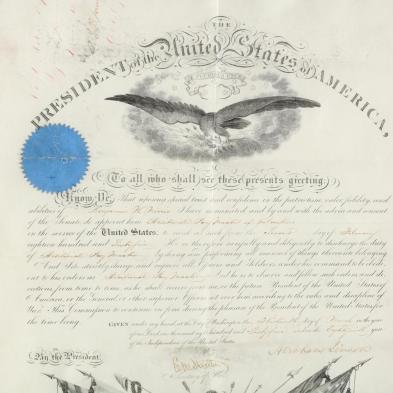 THE
PRESIDENT of the United States of AMERICA,
To all who shall see these presents greeting:
Know Ye, That reposing special trust and confidence in the patriotism, valor, fidelity, and
abilities of I have nominated and by and with the advice and consent
of the Senate, do appoint him Additional Pay Master of Volunteers
in the service of the United States: to rank as such from the day of
eighteen hundred and He is therefore carefully and diligently to discharge the duty
of Additional Pay Master by doing and performing all manner of things thereunto belonging.
And I do strictly charge and require all Officers and Soldiers under his command to be obedi-
ent to his orders as Additional Pay Master And he is to observe and follow such orders, and di-
rections from time to time, as he shall receive from me, or the future President of the United States of
America, or the General or other superior Officers set over him, according to the rules and discipline of
War. This Commission to continue in force during the pleasure of the President of the United States, for
the time being.
GIVEN under my hand at the City of Washington this day of in the year
of our Lord one thousand eight hundred and and in the year
of the Independence of the United States.
By the President
Abraham Lincoln
Secretary of War